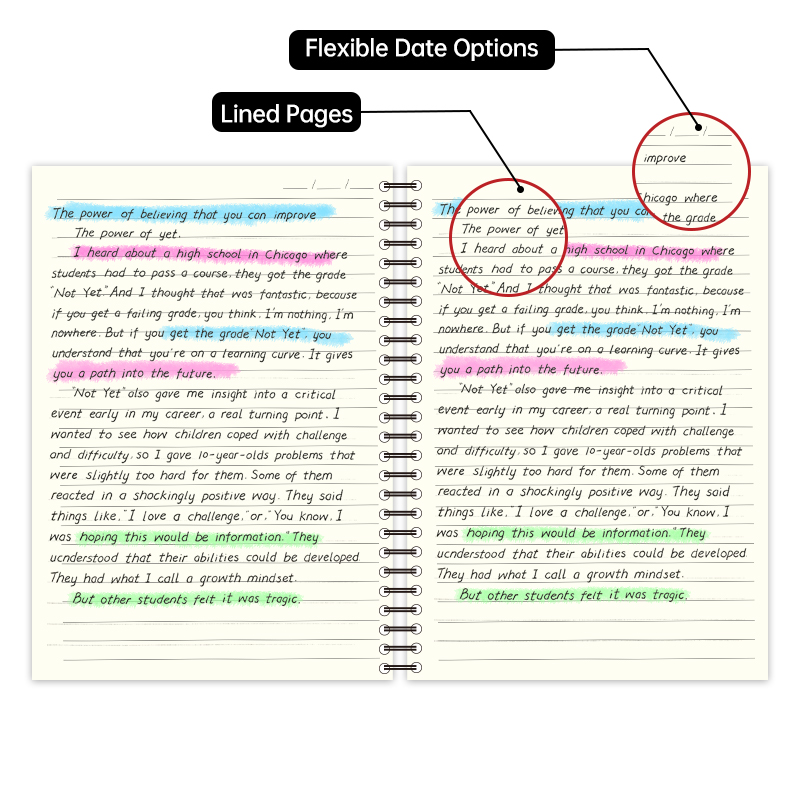 Flexible Date Options
Lined Pages
/ /
The power of believing that you can improve
The power of yet.
I heard about a high school in Chicago where
students had to pass a course, they got the grade
"Not Yet." And I thought that was fantastic, because
if you get a failing grade, you think. I'm nothing, I'm
nowhere. But if you get the grade "Not Yet", you
understand that you're on a learning curve. It gives
you a path into the future.
"Not Yet" also gave me insight into a critical
event early in my career, a real turning point. I
wanted to see how children coped with challenge
and difficulty, so I gave 10-year-olds problems that
were slightly too hard for them. Some of them
reacted in a shockingly positive way. They said
things like, "I love a challenge," or, "You know, I
was hoping this would be information." They
ucnderstood that their abilities could be developed.
They had what I call a growth mindset.
But other students felt it was tragic.
/ /
improve
Chicago where
the grade
The power of believing that you can
The power of yet
I heard about a high school in Chicago where
students had to pass a course, they got the grade
"Not Yet." And I thought that was fantastic, because
if you get a failing grade, you think. I'm nothing, I'm
nowhere. But if you get the grade "Not Yet", you
understand that you're on a learning curve. It gives
you a path into the future.
"Not Yet" also gave me insight into a critical
event early in my career, a real turning point. I
wanted to see how children coped with challenge
and difficulty, so I gave 10-year-olds problems that
were slightly too hard for them. Some of them
reacted in a shockingly positive way. They said
things like, "I love a challenge," or, "You know, I
was hoping this would be information." They
ucnderstood that their abilities could be developed
They had what I call a growth mindset.
But other students felt it was tragic.